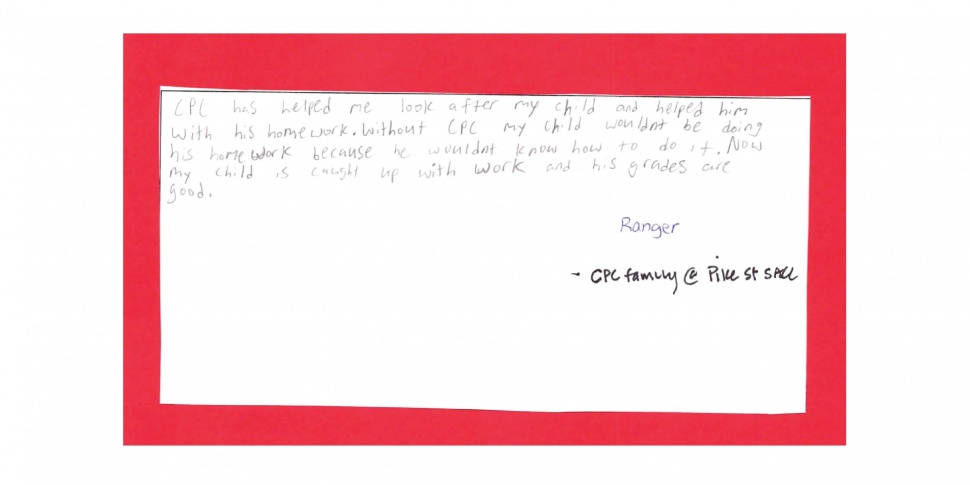 CPC has helped me look after my child and helped him
with his homework. Without CPC my child wouldnt be doing
his homework because he wouldnt know how to do it. Now
my child is caught up with work and his grades are
good.
Ranger
- CPC family @ Pike St